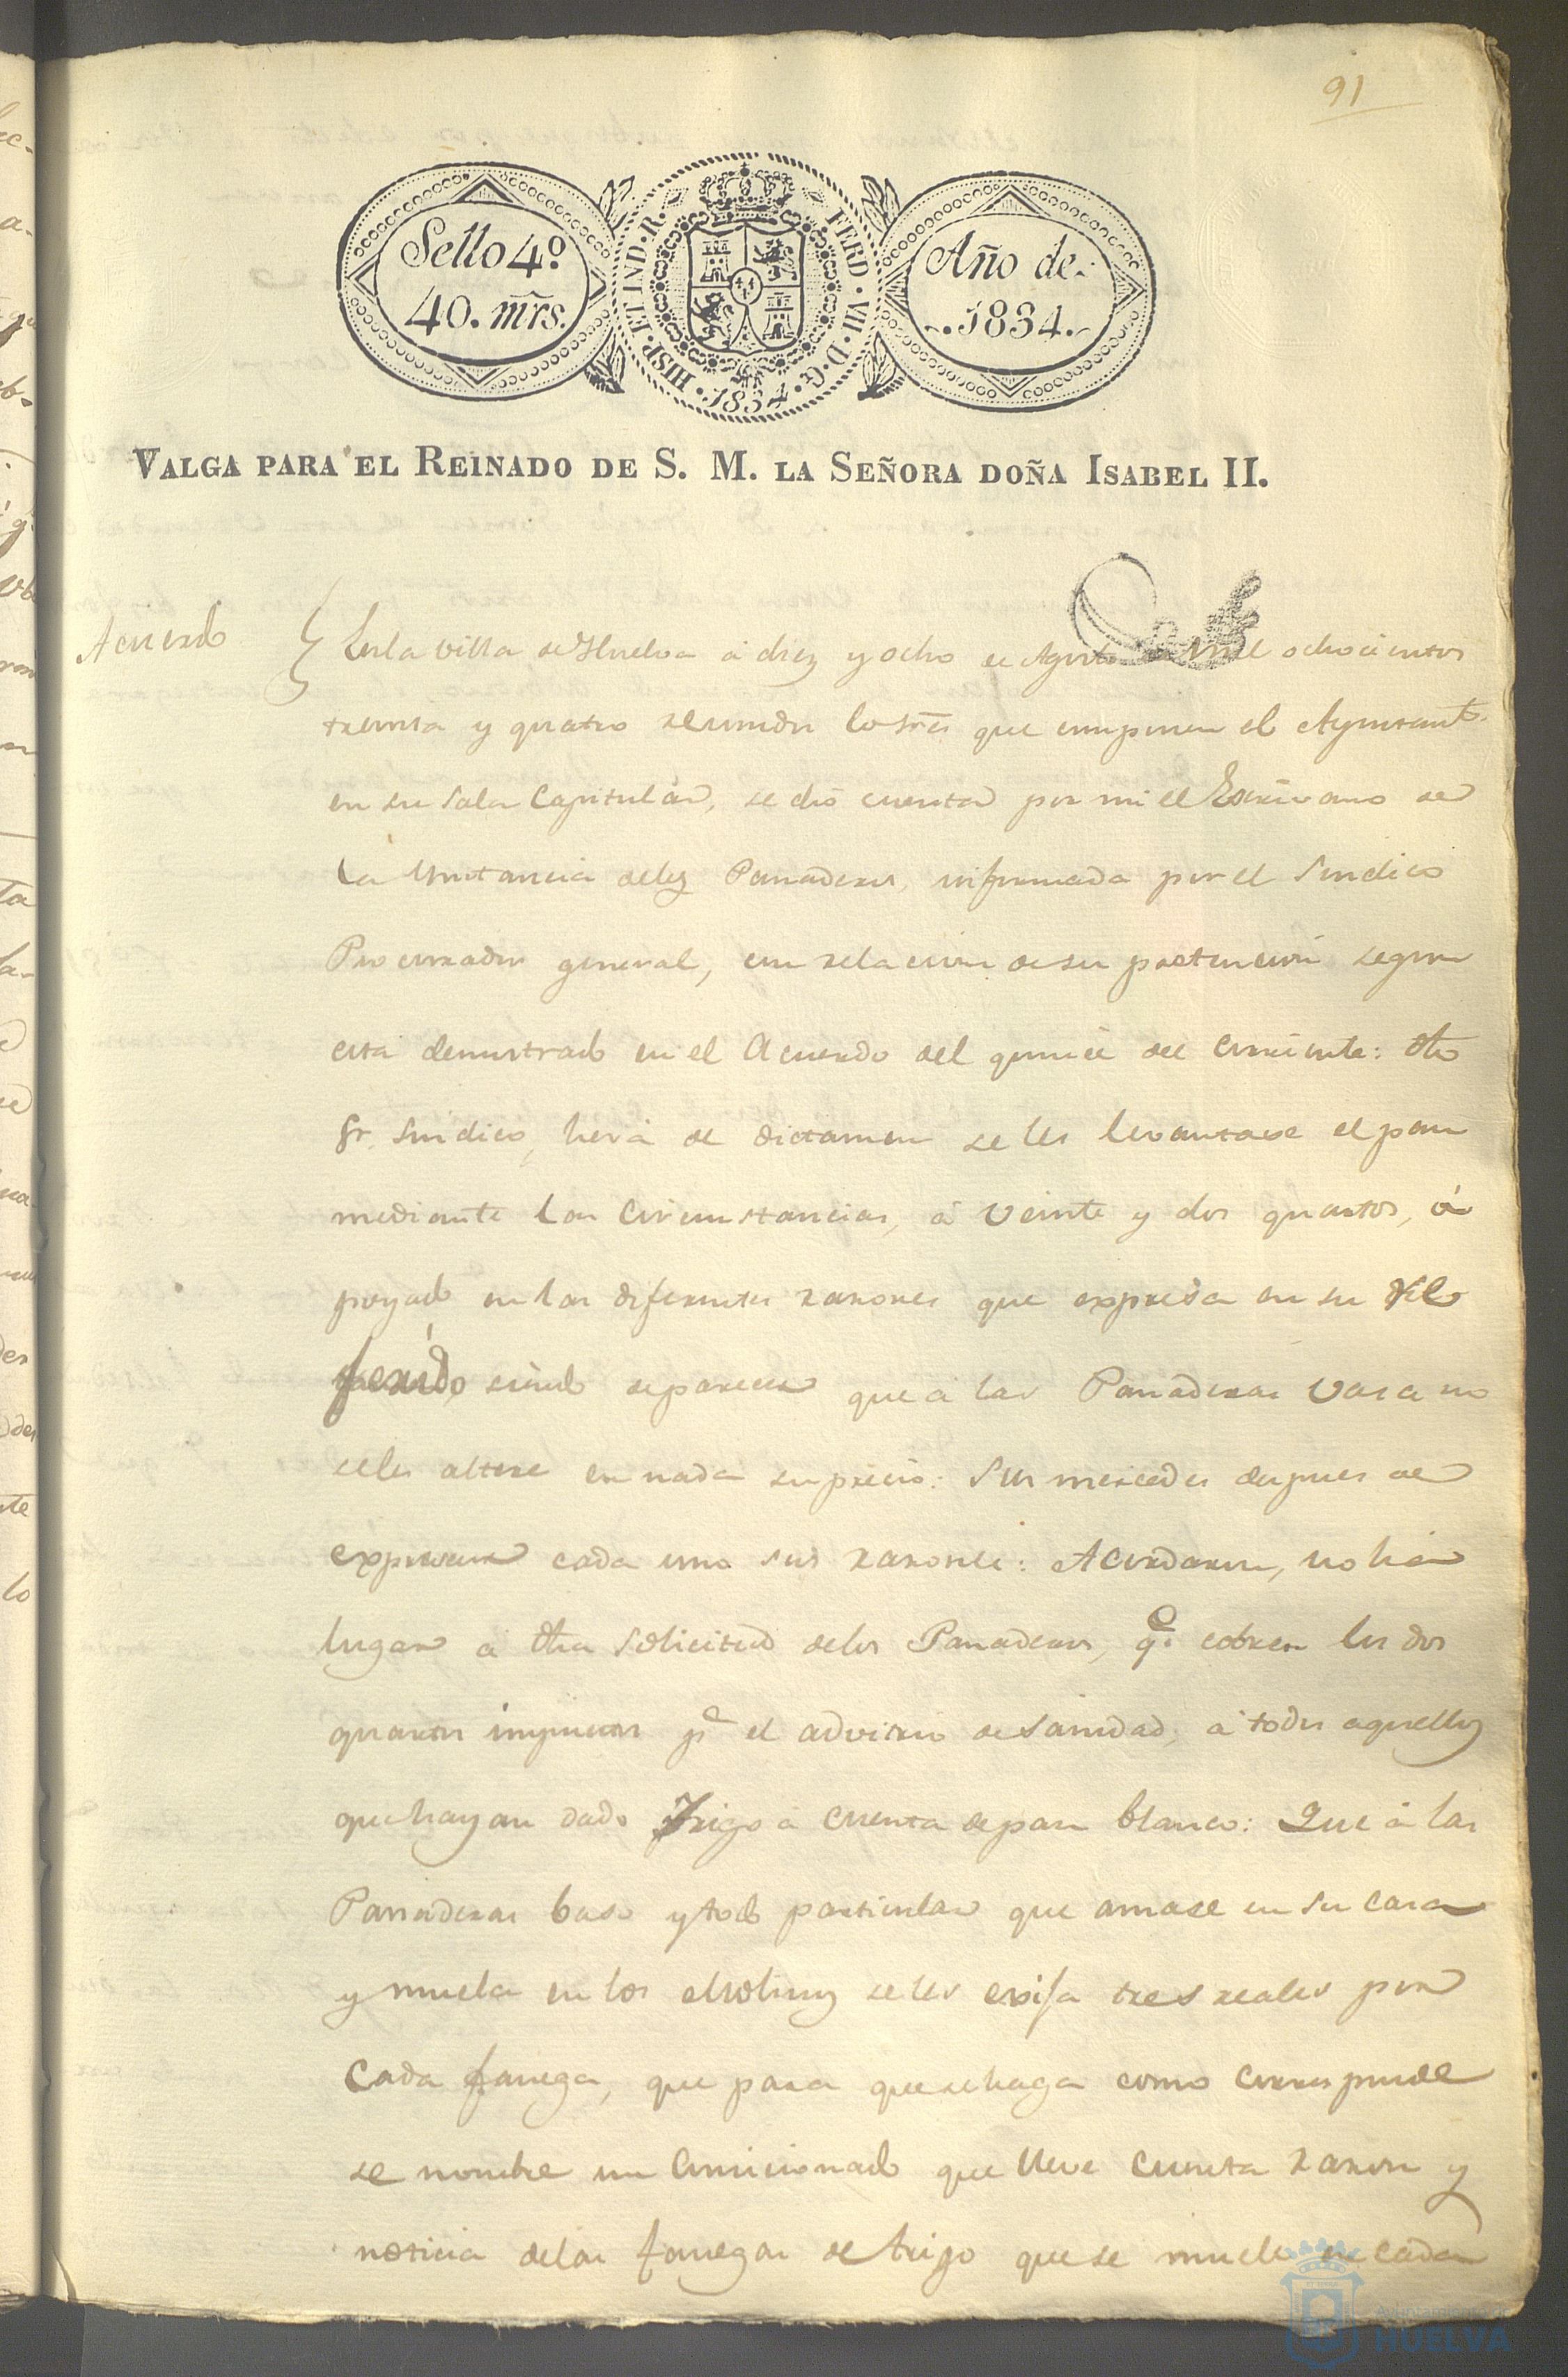 91
Sello 4º
40. mrs.
HISP. ET IND. R. FERD. VII. D. G. 1834.
Año de
1834.
VALGA PARA EL REINADO DE S. M. LA SEÑORA DOÑA ISABEL II.
Acuerdo
Enla villa de Huelva á diez y ocho de Agosto de mil ochocientos
treinta y quatro reunidos los Sres que componen el Ayuntamto
en su Sala Capitular, se dió cuenta por mi el Escrivano de
la Instancia delos Panaderos, informada por el Sindico
Procurador general, con relacion de su pretencion segun
está demostrado en el Acuerdo del quince del corriente: dho
Sr. Sindico, herá de dictamen se les levantase el pan
mediante las circunstancias, á veinte y dos quartos, á
poyado en las diferentes razones que expresa en su
ferido, siendo deparecer que á las Panaderas vasa no
seles altere en nada su precio: Sus mercedes despues de
expresar cada uno sus razones: Acordaron, no há
lugar á dha solicitud delos Panaderos, qe. cobren los dos
quartos impuestos pa el advitrio de Sanidad, á todos aquellos
que hayan dado Trigo á cuenta depan blanco: Que á las
Panaderas baso y todo particular que amase en su casa
y muela en los Molinos seles exija tres reales por
Cada fanega, que para que se haga como corresponde
se nombre un Comicionado que lleve cuenta razon y
noticia delas fanegas de trigo que se muele en cada
Ayuntamiento de
HUELVA